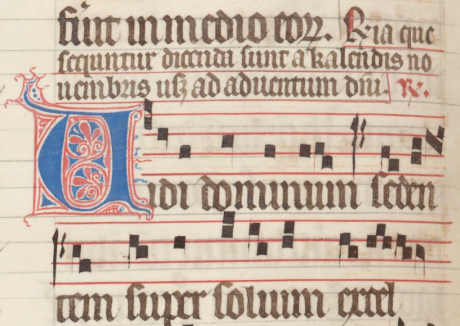 sūt in medio eoꝝ. R̄ia que
sequuntur dicenda sunt a kalendis no
uembris usꝫ ad aduentum dn̄i. R.
Vidi dominum seden
tem super solium excel